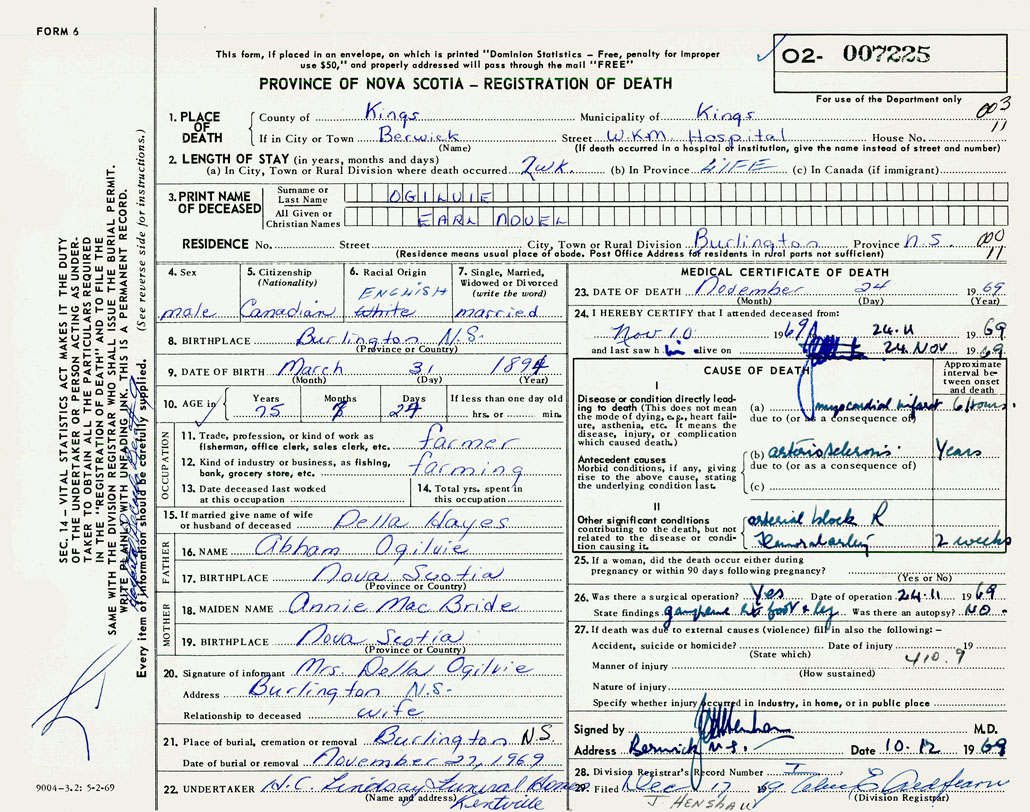 FORM 6
This form, if placed in an envelope, on which is printed "Dominion Statistics – Free, penalty for improper
use $50," and properly addressed will pass through the mail "FREE"
PROVINCE OF NOVA SCOTIA – REGISTRATION OF DEATH
02- 007225
For use of the Department only
003
11
1. PLACE OF DEATH
County of Kings Municipality of Kings
If in City or Town Berwick Street W.K.M. Hospital House No.
(Name) (If death occurred in a hospital or institution, give the name instead of street and number)
2. LENGTH OF STAY (in years, months and days)
(a) In City, Town or Rural Division where death occurred 2wk. (b) In Province LIFE (c) In Canada (if immigrant)
3. PRINT NAME OF DECEASED
Surname or Last Name OGILVIE
All Given or Christian Names EARL NOVEL
RESIDENCE No. Street City, Town or Rural Division Burlington Province N.S. 000
(Residence means usual place of abode. Post Office Address for residents in rural parts not sufficient) 11
4. Sex male
5. Citizenship (Nationality) Canadian
6. Racial Origin ENGLISH White
7. Single, Married, Widowed or Divorced (write the word) married
8. BIRTHPLACE Burlington N.S.
(Province or Country)
9. DATE OF BIRTH March 31 1894
(Month) (Day) (Year)
10. AGE in Years 75 Months 7 Days 24 If less than one day old
hrs. or min.
OCCUPATION
11. Trade, profession, or kind of work as
fisherman, office clerk, sales clerk, etc. farmer
12. Kind of industry or business, as fishing,
bank, grocery store, etc. farming
13. Date deceased last worked
at this occupation
14. Total yrs. spent in
this occupation
15. If married give name of wife
or husband of deceased Della Hayes
FATHER
16. NAME Abham Ogilvie
17. BIRTHPLACE Nova Scotia
(Province or Country)
MOTHER
18. MAIDEN NAME Annie Mac Bride
19. BIRTHPLACE Nova Scotia
(Province or Country)
20. Signature of informant Mrs. Della Ogilvie
Address Burlington N.S.
Relationship to deceased wife
21. Place of burial, cremation or removal Burlington N.S.
Date of burial or removal November 27, 1969
22. UNDERTAKER H.C. Lindsay Funeral Home
(Name and address) Kentville
MEDICAL CERTIFICATE OF DEATH
23. DATE OF DEATH November 24 1969
(Month) (Day) (Year)
24. I HEREBY CERTIFY that I attended deceased from:
Nov 10 1969 24.11 1969
and last saw him alive on 24 NOV 1969
CAUSE OF DEATH
Approximate interval between onset and death
I
Disease or condition directly leading to death (This does not mean the mode of dying, e.g., heart failure, asthenia, etc. It means the disease, injury, or complication which caused death.)
(a) myocardial infarct 6 hours.
due to (or as a consequence of)
Antecedent causes
Morbid conditions, if any, giving rise to the above cause, stating the underlying condition last.
(b) arteriosclerosis. Years
due to (or as a consequence of)
(c)
II
Other significant conditions contributing to the death, but not related to the disease or condition causing it.
arterial block R
Femoral artery 2 weeks
25. If a woman, did the death occur either during
pregnancy or within 90 days following pregnancy?
(Yes or No)
26. Was there a surgical operation? Yes Date of operation 24.11 1969
State findings gangrene Rt foot & leg Was there an autopsy? NO.
27. If death was due to external causes (violence) fill in also the following: –
Accident, suicide or homicide? Date of injury 19
(State which) 410.9
Manner of injury
(How sustained)
Nature of injury
Specify whether injury occurred in Industry, in home, or in public place
Signed by M.D.
Address Berwick N.S. Date 10.12 1969
28. Division Registrar's Record Number I
29. Filed Dec 17 19
(Division Registrar)
J. HENSHAW
SEC. 14 – VITAL STATISTICS ACT MAKES IT THE DUTY
OF THE UNDERTAKER OR PERSON ACTING AS UNDER-
TAKER TO OBTAIN ALL THE PARTICULARS REQUIRED
IN THE "REGISTRATION OF DEATH" AND TO FILE THE
SAME WITH THE DIVISION REGISTRAR WHO SHALL ISSUE THE BURIAL PERMIT.
WRITE PLAINLY WITH UNFADING INK. THIS IS A PERMANENT RECORD.
Every item of information should be carefully supplied. (See reverse side for instructions.)
9004–3.2: 5-2-69